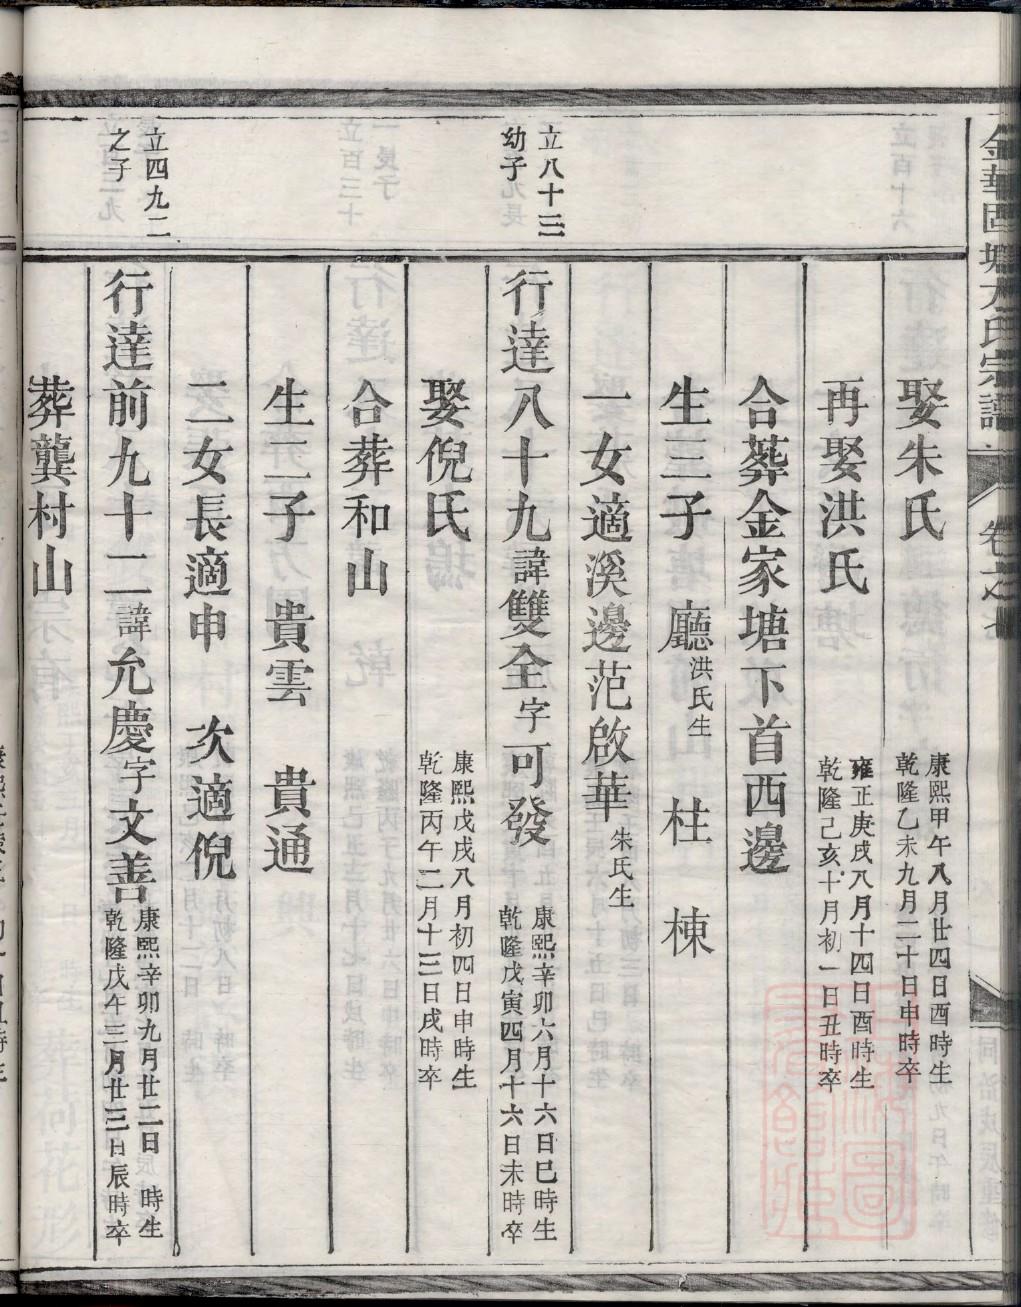 金華固塘方氏宗譜
卷之七
娶朱氏
康熙甲午八月廿四日酉時生
乾隆乙未九月二十日申時卒
再娶洪氏
雍正庚戌八月十四日酉時生
乾隆己亥十月初一日丑時卒
合葬金家塘下首西邊
生三子 廳洪氏生 柱 棟
一女適溪邊范啟華朱氏生
立八十三
幼子
行達八十九諱雙全字可發
康熙辛卯六月十六日巳時生
乾隆戊寅四月十六日未時卒
娶倪氏
康熙戊戌八月初四日申時生
乾隆丙午二月十三日戌時卒
合葬和山
生二子 貴雲 貴通
二女長適申 次適倪
立四九二
之子
行達前九十二諱允慶字文善
康熙辛卯九月廿二日 時生
乾隆戊午三月廿三日辰時卒
葬龔村山